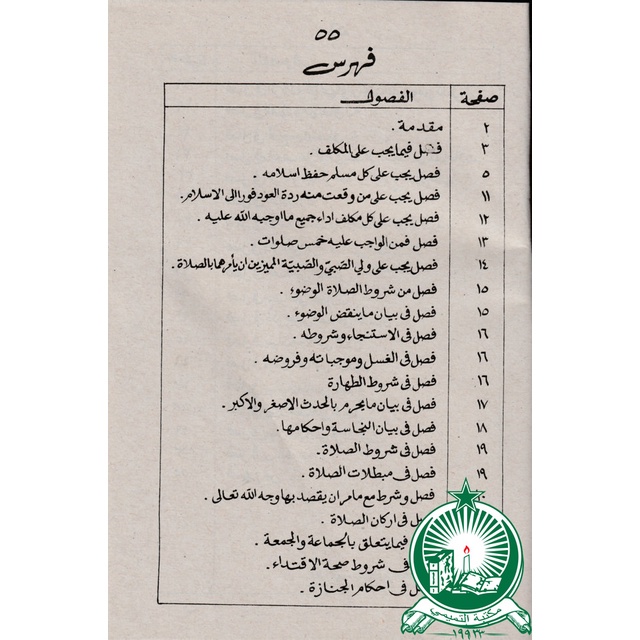 ٥٥
فهرس
صفحة الفصول
٢ مقدمة .
٣ فصل فيما يجب على المكلف .
٥ فصل يجب على كل مسلم حفظ اسلامه .
١١ فصل يجب على من وقعت منه ردة العود فورا الى الاسلام .
١٢ فصل يجب على كل مكلف اداء جميع ما اوجبه الله عليه .
١٣ فصل فمن الواجب عليه خمس صلوات .
١٤ فصل يجب على ولي الصَّبيِّ والصَّبيَّة المميزين ان يأمرهما بالصلاة .
١٥ فصل من شروط الصلاة الوضوء .
١٥ فصل فى بيان ما ينقض الوضوء .
١٦ فصل فى الاستنجاء وشروطه .
١٦ فصل فى الغسل وموجباته وفروضه .
١٦ فصل فى شروط الطهارة
١٧ فصل فى بيان ما يحرم بالحدث الاصغر والاكبر .
١٨ فصل فى بيان النجاسة واحكامها .
١٩ فصل فى شروط الصلاة .
١٩ فصل فى مبطلات الصلاة .
فصل وشرط مع مامر ان يقصد بها وجه الله تعالى .
فى اركان الصلاة .
فيما يتعلق بالجماعة والجمعة .
فى شروط صحة الاقتداء .
فى احكام الجنازة .
مكتبة التميمي